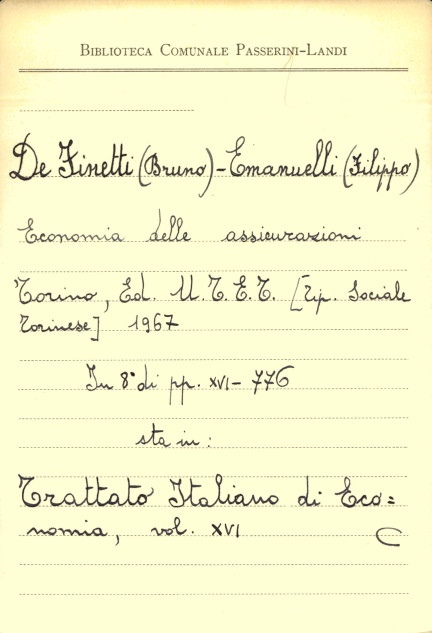 Biblioteca Comunale Passerini-Landi
De Finetti (Bruno) - Emanuelli (Filippo)
Economia delle assicurazioni
Torino, Ed. U.T.E.T. [Tip. Sociale
Torinese] 1967
In 8° di pp. XVI - 776
sta in:
Trattato Italiano di Eco=
nomia, vol. XVI
C